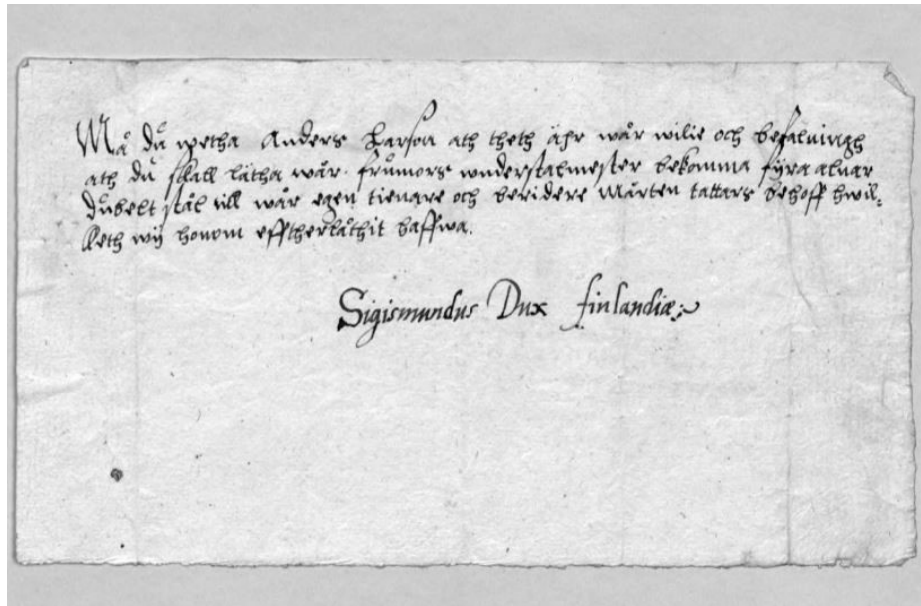 Må du wetha Anders Larson ath theth ähr wår wilie och befalningh
ath du skall låtha wår frumors wnderstalmester bekomma fÿra alnar
dubelt stål till wår egen tienare och beridere Mårten tattars behoff hwil-
keth wij honom efftherlåthit haffwa.
Sigismundus Dux finlandiæ